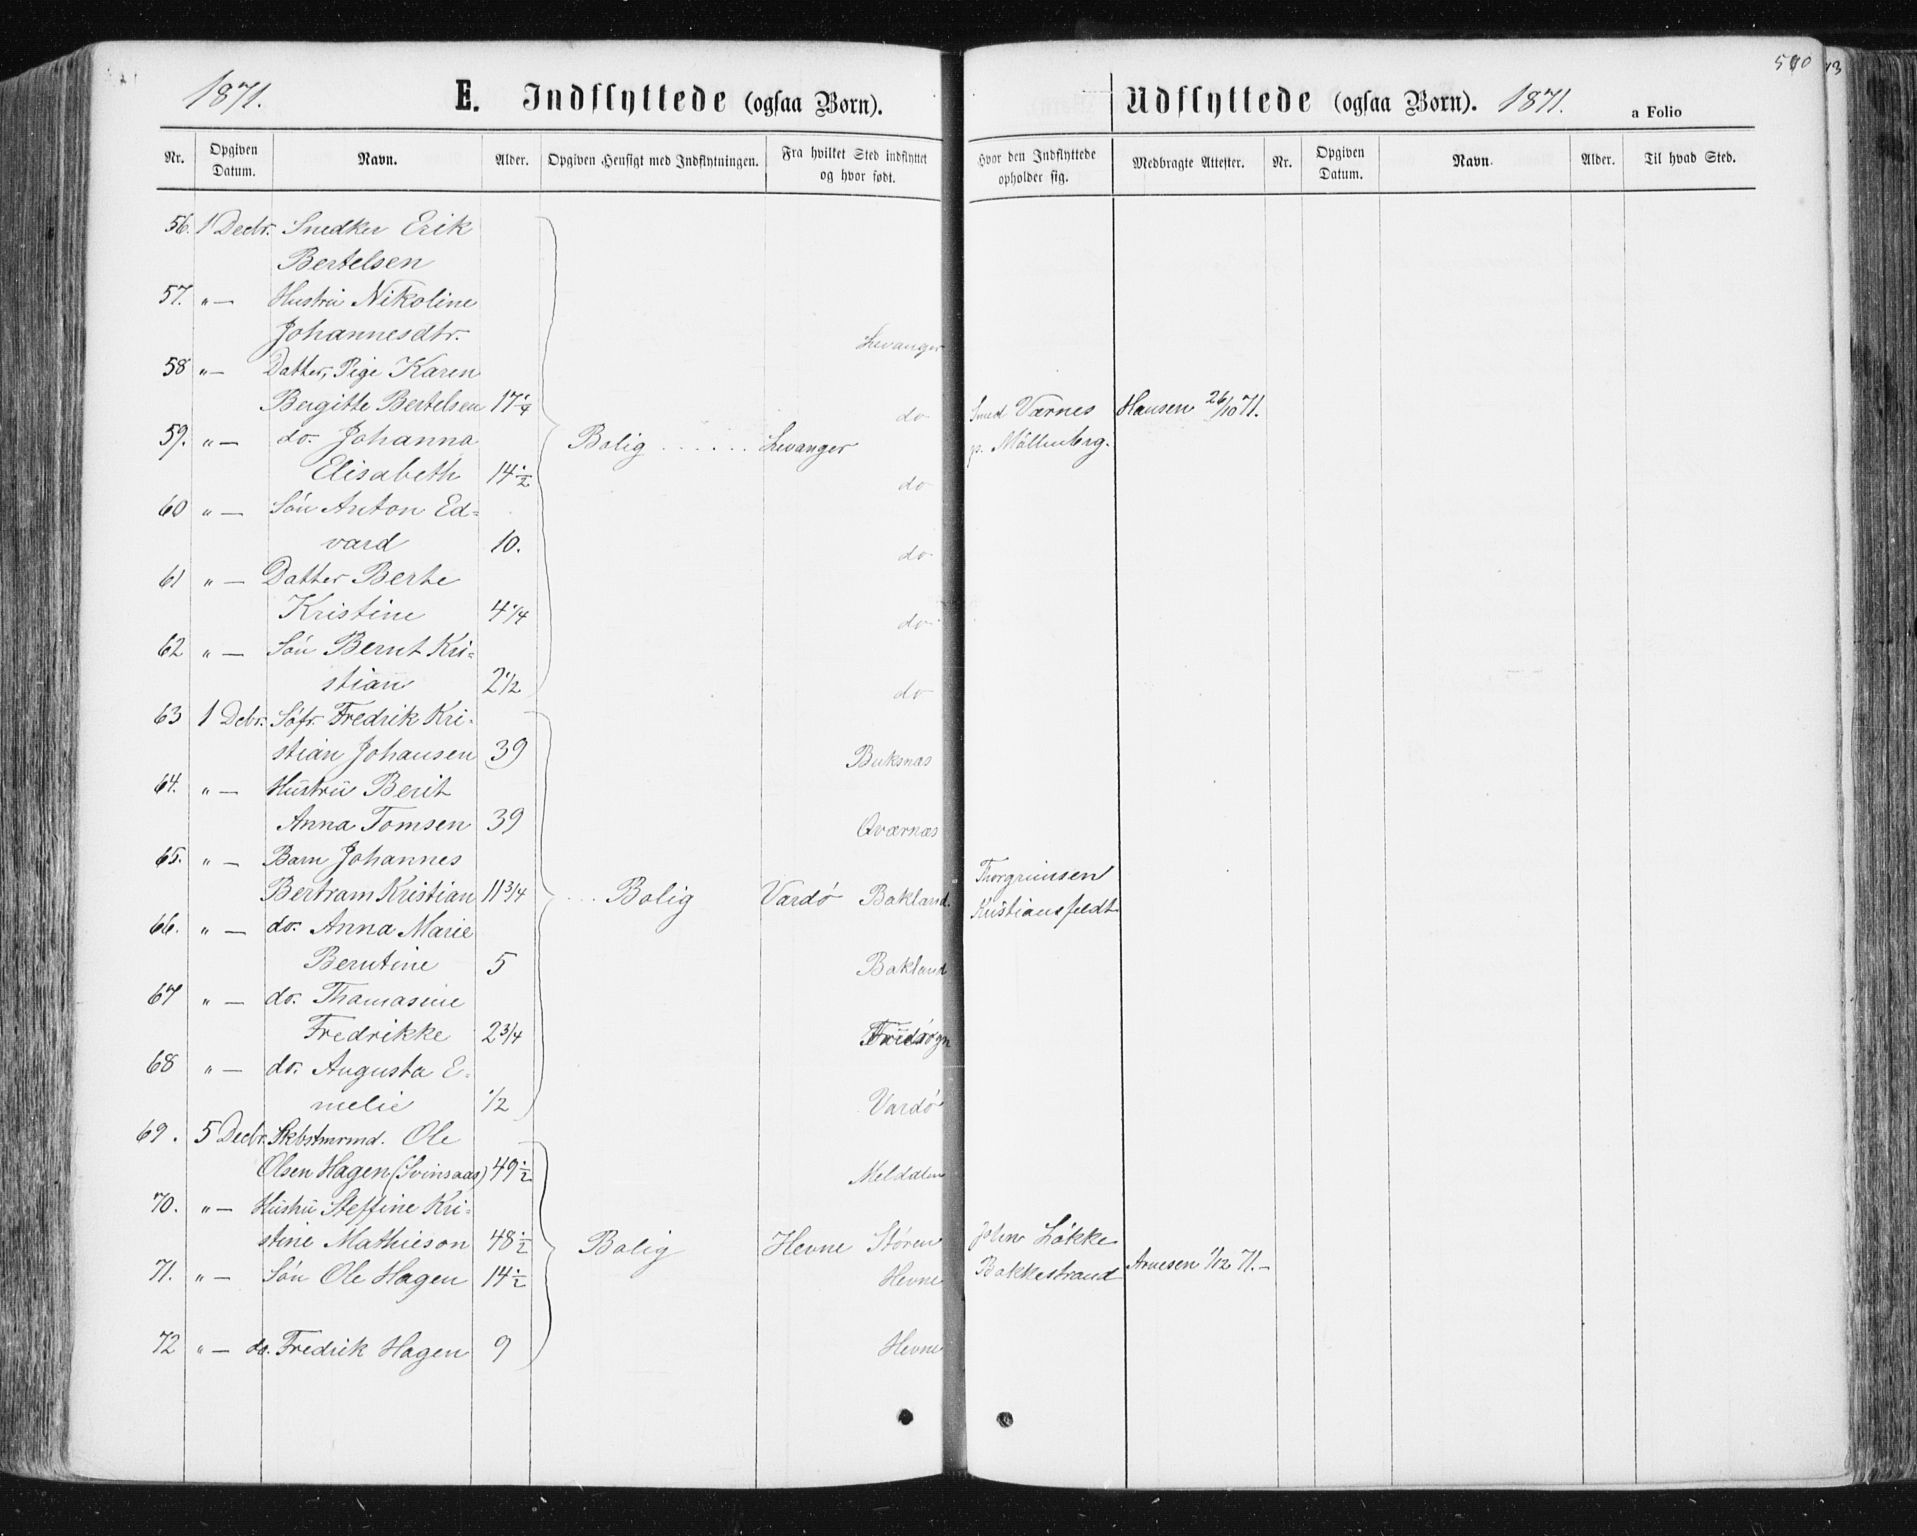 1871. E. Indflyttede (ogsaa Born). Udflyttede (ogsaa Born). 1871. a Folio
Nr. Opgiven Datum. Navn. Alder. Opgiven Hensigt med Indflytningen. Fra hvilket Sted indflyttet og hvor født. Hvor den Indflyttede opholder sig. Medbragte Attester. Nr. Opgiven Datum. Navn. Alder. Til hvad Sted.
56. 1 Decbr. Snedker Erik
Bertelsen
57. " — Hustru Nikoline
Johannesdtr. Levanger
58 " — Datter, Pige Karen
Bergitte Bertelsen 17 1/4 do Smed Værnes Hansen 26/10 71.
59. " — do. Johanna Bolig . . . . . . Levanger p. Møllenberg.
Elisabeth 14 1/2 do
60 " — Søn Anton Ed=
vard 10. do
61 " — Datter Berte
Kristine 4 1/4 do
62 " — Søn Bernt Kri=
stian 2 1/2 do
63 1 Debr. Søfr. Fredrik Kri-
stian Johansen 39 Buksnæs
64. " — Hustru Berit
Anna Tomsen 39 Qværnæs
65. " — Barn Johannes Thorgrimsen
Bertram Kristian 11 3/4 . . . Bolig Vardø Bakland. Kristiansfeldt
66. " — do. Anna Marie
Berntine 5 Bakland
67 " — do. Thomasine
Fredrikke 2 3/4
68 " — do. Augusta E-
melie 1/2 Vardø
69. 5 Decbr. Ole
Olsen Hagen (Svinsaas) 49 1/2 Meldalen
70. " — Hustru Steffine Kri-
stine Mathieson 48 1/2 Bolig Hevne Støren John Løkke
71. " — Søn Ole Hagen 14 1/2 Hevne Bakkestrand Arnesen 1/12 71. —
72 " — do. Fredrik Hagen 9 Hevne